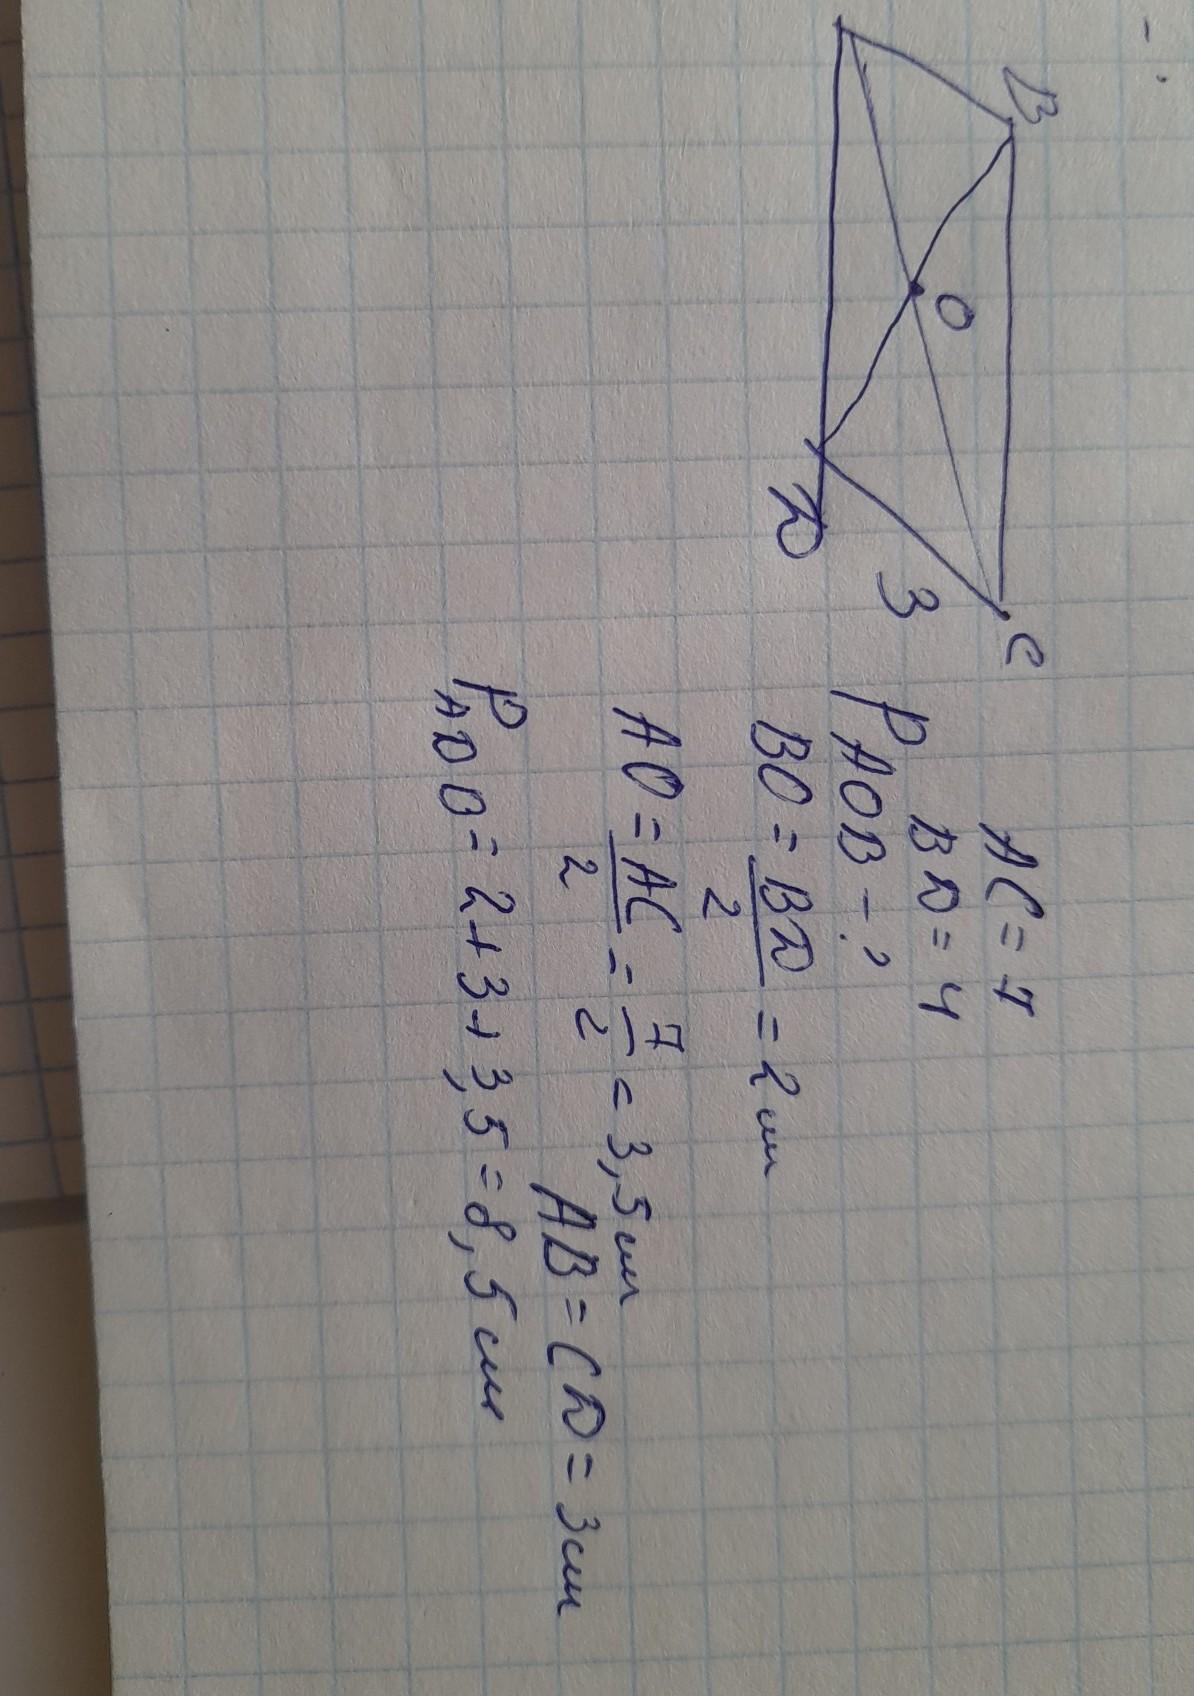 B
C
O
D
3
AC = 7
BD = 4
P AOB - ?
BO = BD/2 = 2 см
AO = AC/2 = 7/2 = 3,5 см
AB = CD = 3 см
P ADO = 2 + 3 + 3,5 = 8,5 см